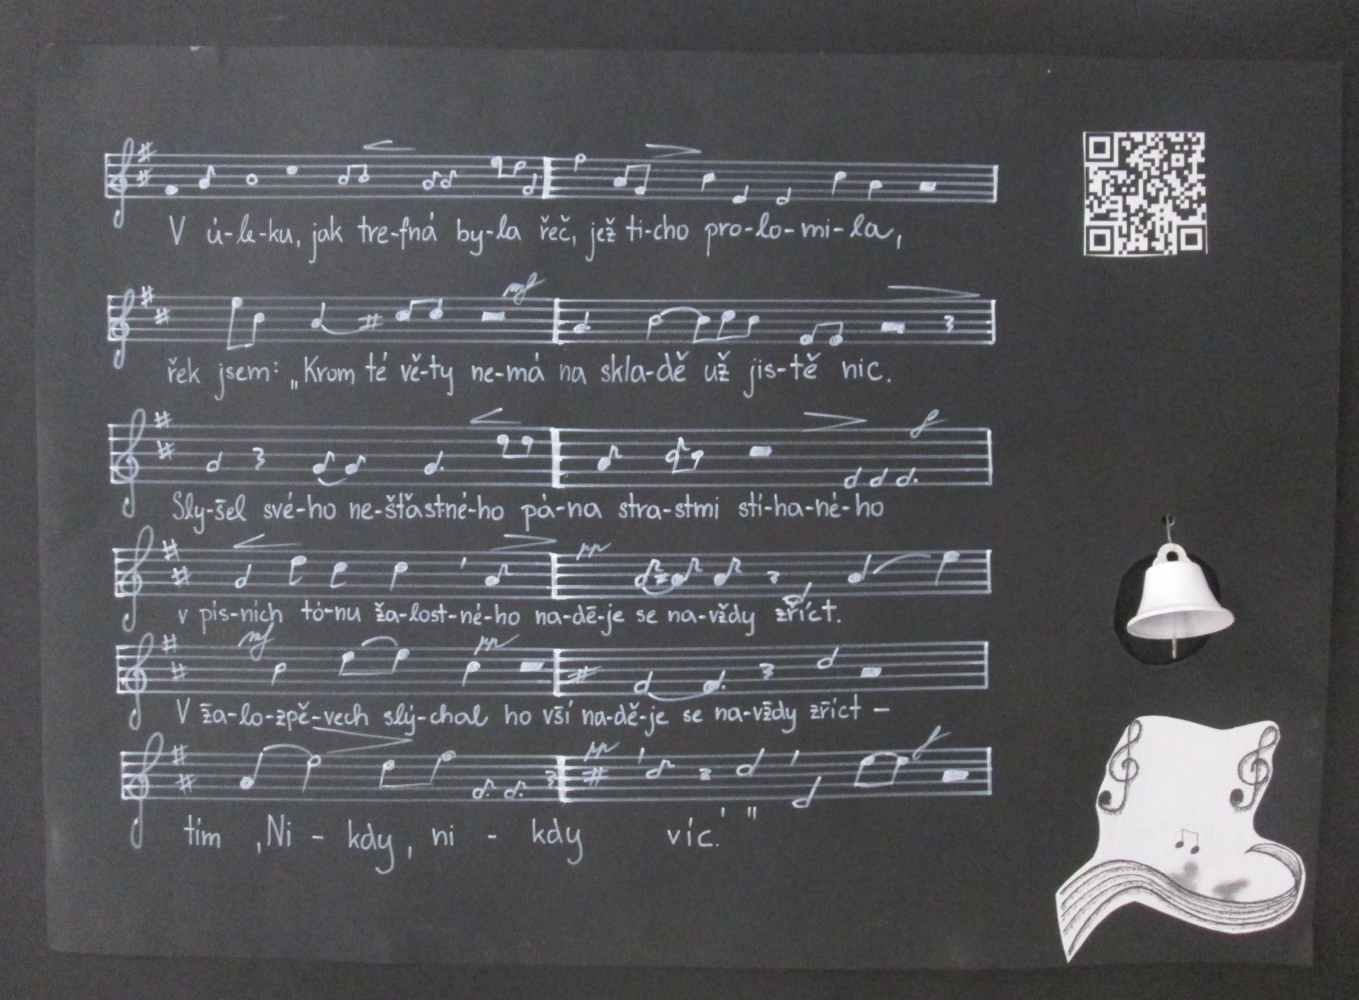 V ú-le-ku, jak tre-fná by-la řeč, jež ti-cho pro-lo-mi-la,
mf
řek jsem: „Krom té vě-ty ne-má na skla-dě už jis-tě nic.
f
Sly-šel své-ho ne-šťastné-ho pá-na stra-stmi stí-ha-né-ho
pp
v pís-ních tó-nu ža-lost-né-ho na-dě-je se na-vždy zříct.
mf pp
V ža-lo-zpě-vech slý-chal ho vší na-dě-je se na-vždy zříct –
pp f
tím ‚Ni - kdy, ni - kdy víc.' "